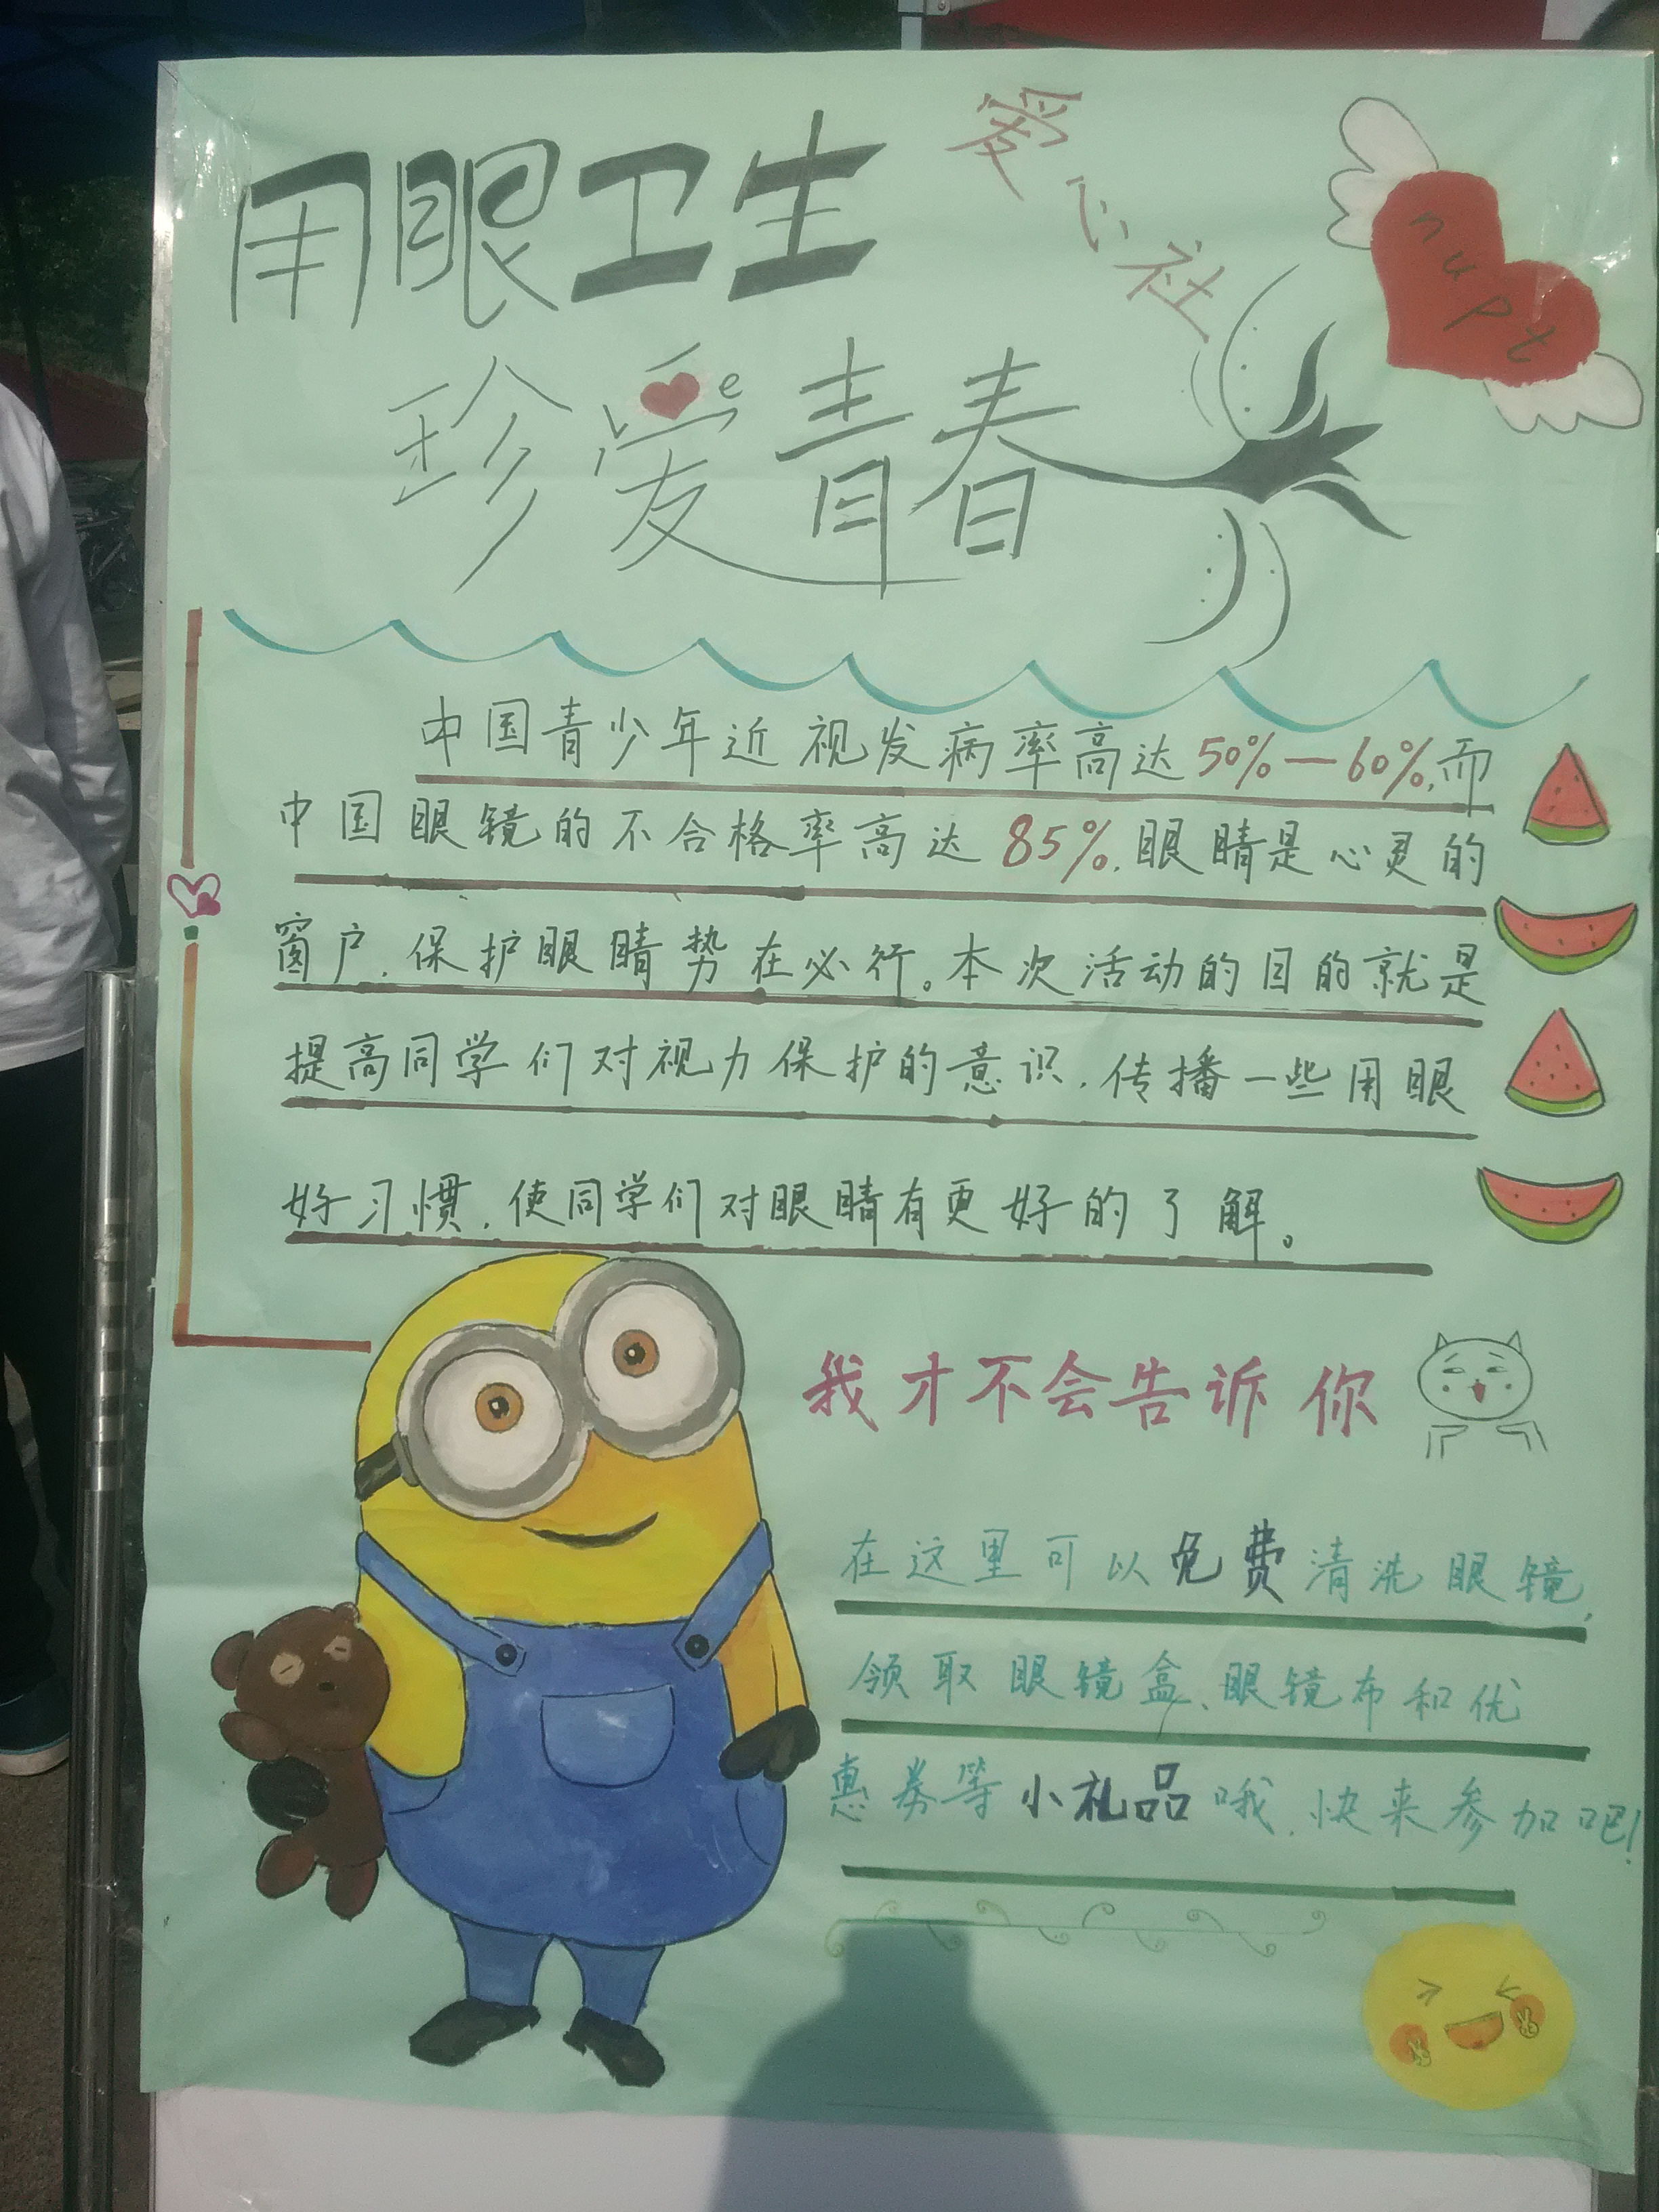 用眼卫生
爱心社
nupt
珍爱青春
中国青少年近视发病率高达50%—60%,而
中国眼镜的不合格率高达85%.眼睛是心灵的
窗户.保护眼睛势在必行。本次活动的目的就是
提高同学们对视力保护的意识.传播一些用眼
好习惯.使同学们对眼睛有更好的了解。
我才不会告诉你
在这里可以免费清洗眼镜,
领取眼镜盒、眼镜布和优
惠券等小礼品哦.快来参加吧!